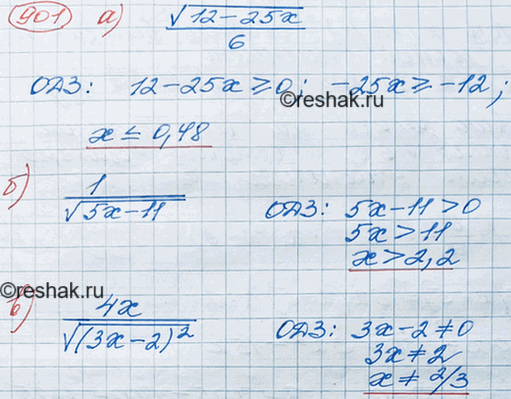 901 а) √(12-25x) / 6
ОДЗ: 12-25x ≥ 0; -25x ≥ -12;
©reshak.ru
x ≤ 0,48
б) 1 / √(5x-11) ОДЗ: 5x-11 > 0
5x > 11
x > 2,2
©reshak.ru
в) 4x / √((3x-2)²) ОДЗ: 3x-2 ≠ 0
3x ≠ 2
x ≠ 2/3